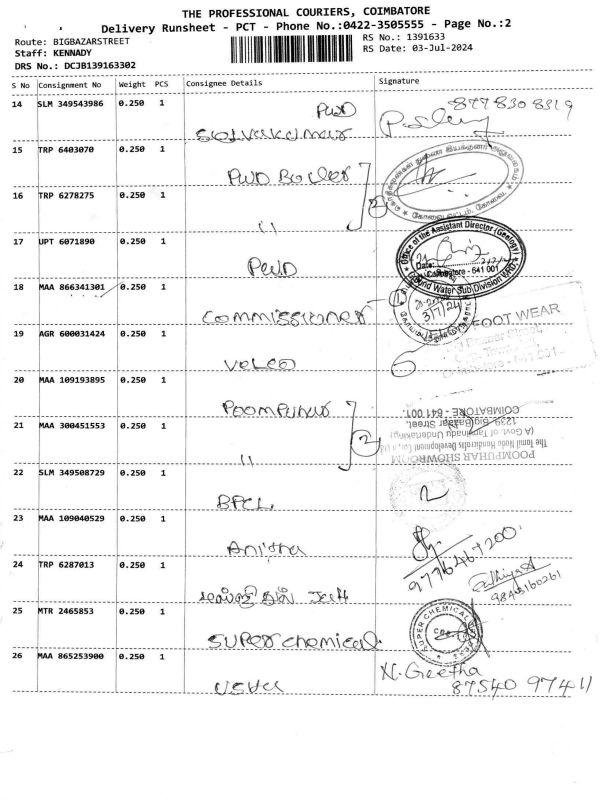 THE PROFESSIONAL COURIERS, COIMBATORE
Delivery Runsheet - PCT - Phone No.:0422-3505555 - Page No.:2
Route: BIGBAZARSTREET
Staff: KENNADY
DRS No.: DCJB139163302
RS No.: 1391633
RS Date: 03-Jul-2024
S No Consignment No Weight PCS Consignee Details Signature
14 SLM 349543986 0.250 1 PWD
8778308319
15 TRP 6403070 0.250 1 PWD Boiler
16 TRP 6278275 0.250 1 11 2
17 UPT 6071890 0.250 1 PWD
Office of the Assistant Director (Geology)
Date:
Coimbatore - 641 001
Ground Water Sub Division WRD
18 MAA 866341301 0.250 1 Commissioner
3/7/24
19 AGR 600031424 0.250 1 VELCO
FOOT WEAR
20 MAA 109193895 0.250 1 POOMPUHAR
21 MAA 300451553 0.250 1 11 2
POOMPUHAR SHOWROOM
The Tamil Nadu Handicrafts Development Co., Ltd
(A Govt. of Tamilnadu Undertaking)
1239, Big Bazaar Street,
COIMBATORE - 641 001.
22 SLM 349508729 0.250 1 BPCL
2
23 MAA 109040529 0.250 1 Anitha
9776467200
24 TRP 6287013 0.250 1
9843160261
25 MTR 2465853 0.250 1 SUPER chemical
SUPER CHEMICAL
26 MAA 865253900 0.250 1 USHA
N. Geetha
87540 97411